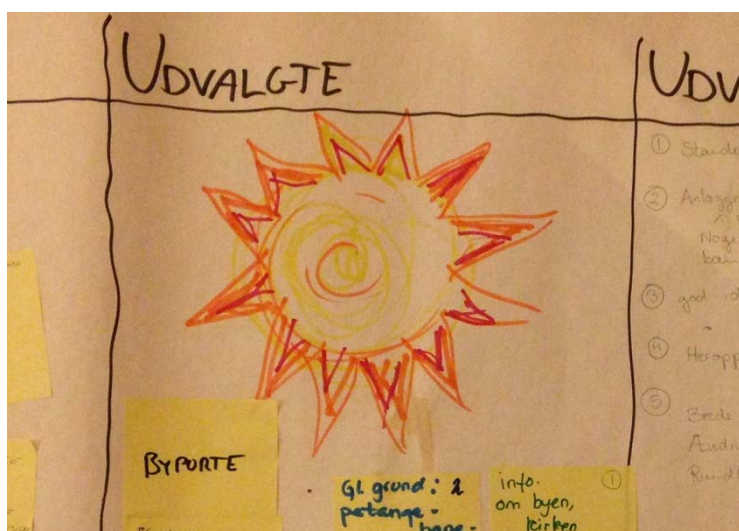 UDVALGTE
UDV
① Staude
② Anlægge
Noge
③ god id
④ Heropp
⑤ Breds
Ændri
Rundt
BYPORTE
GL grund: 2
petange-
bane-
info. ①
om byen,
kirken